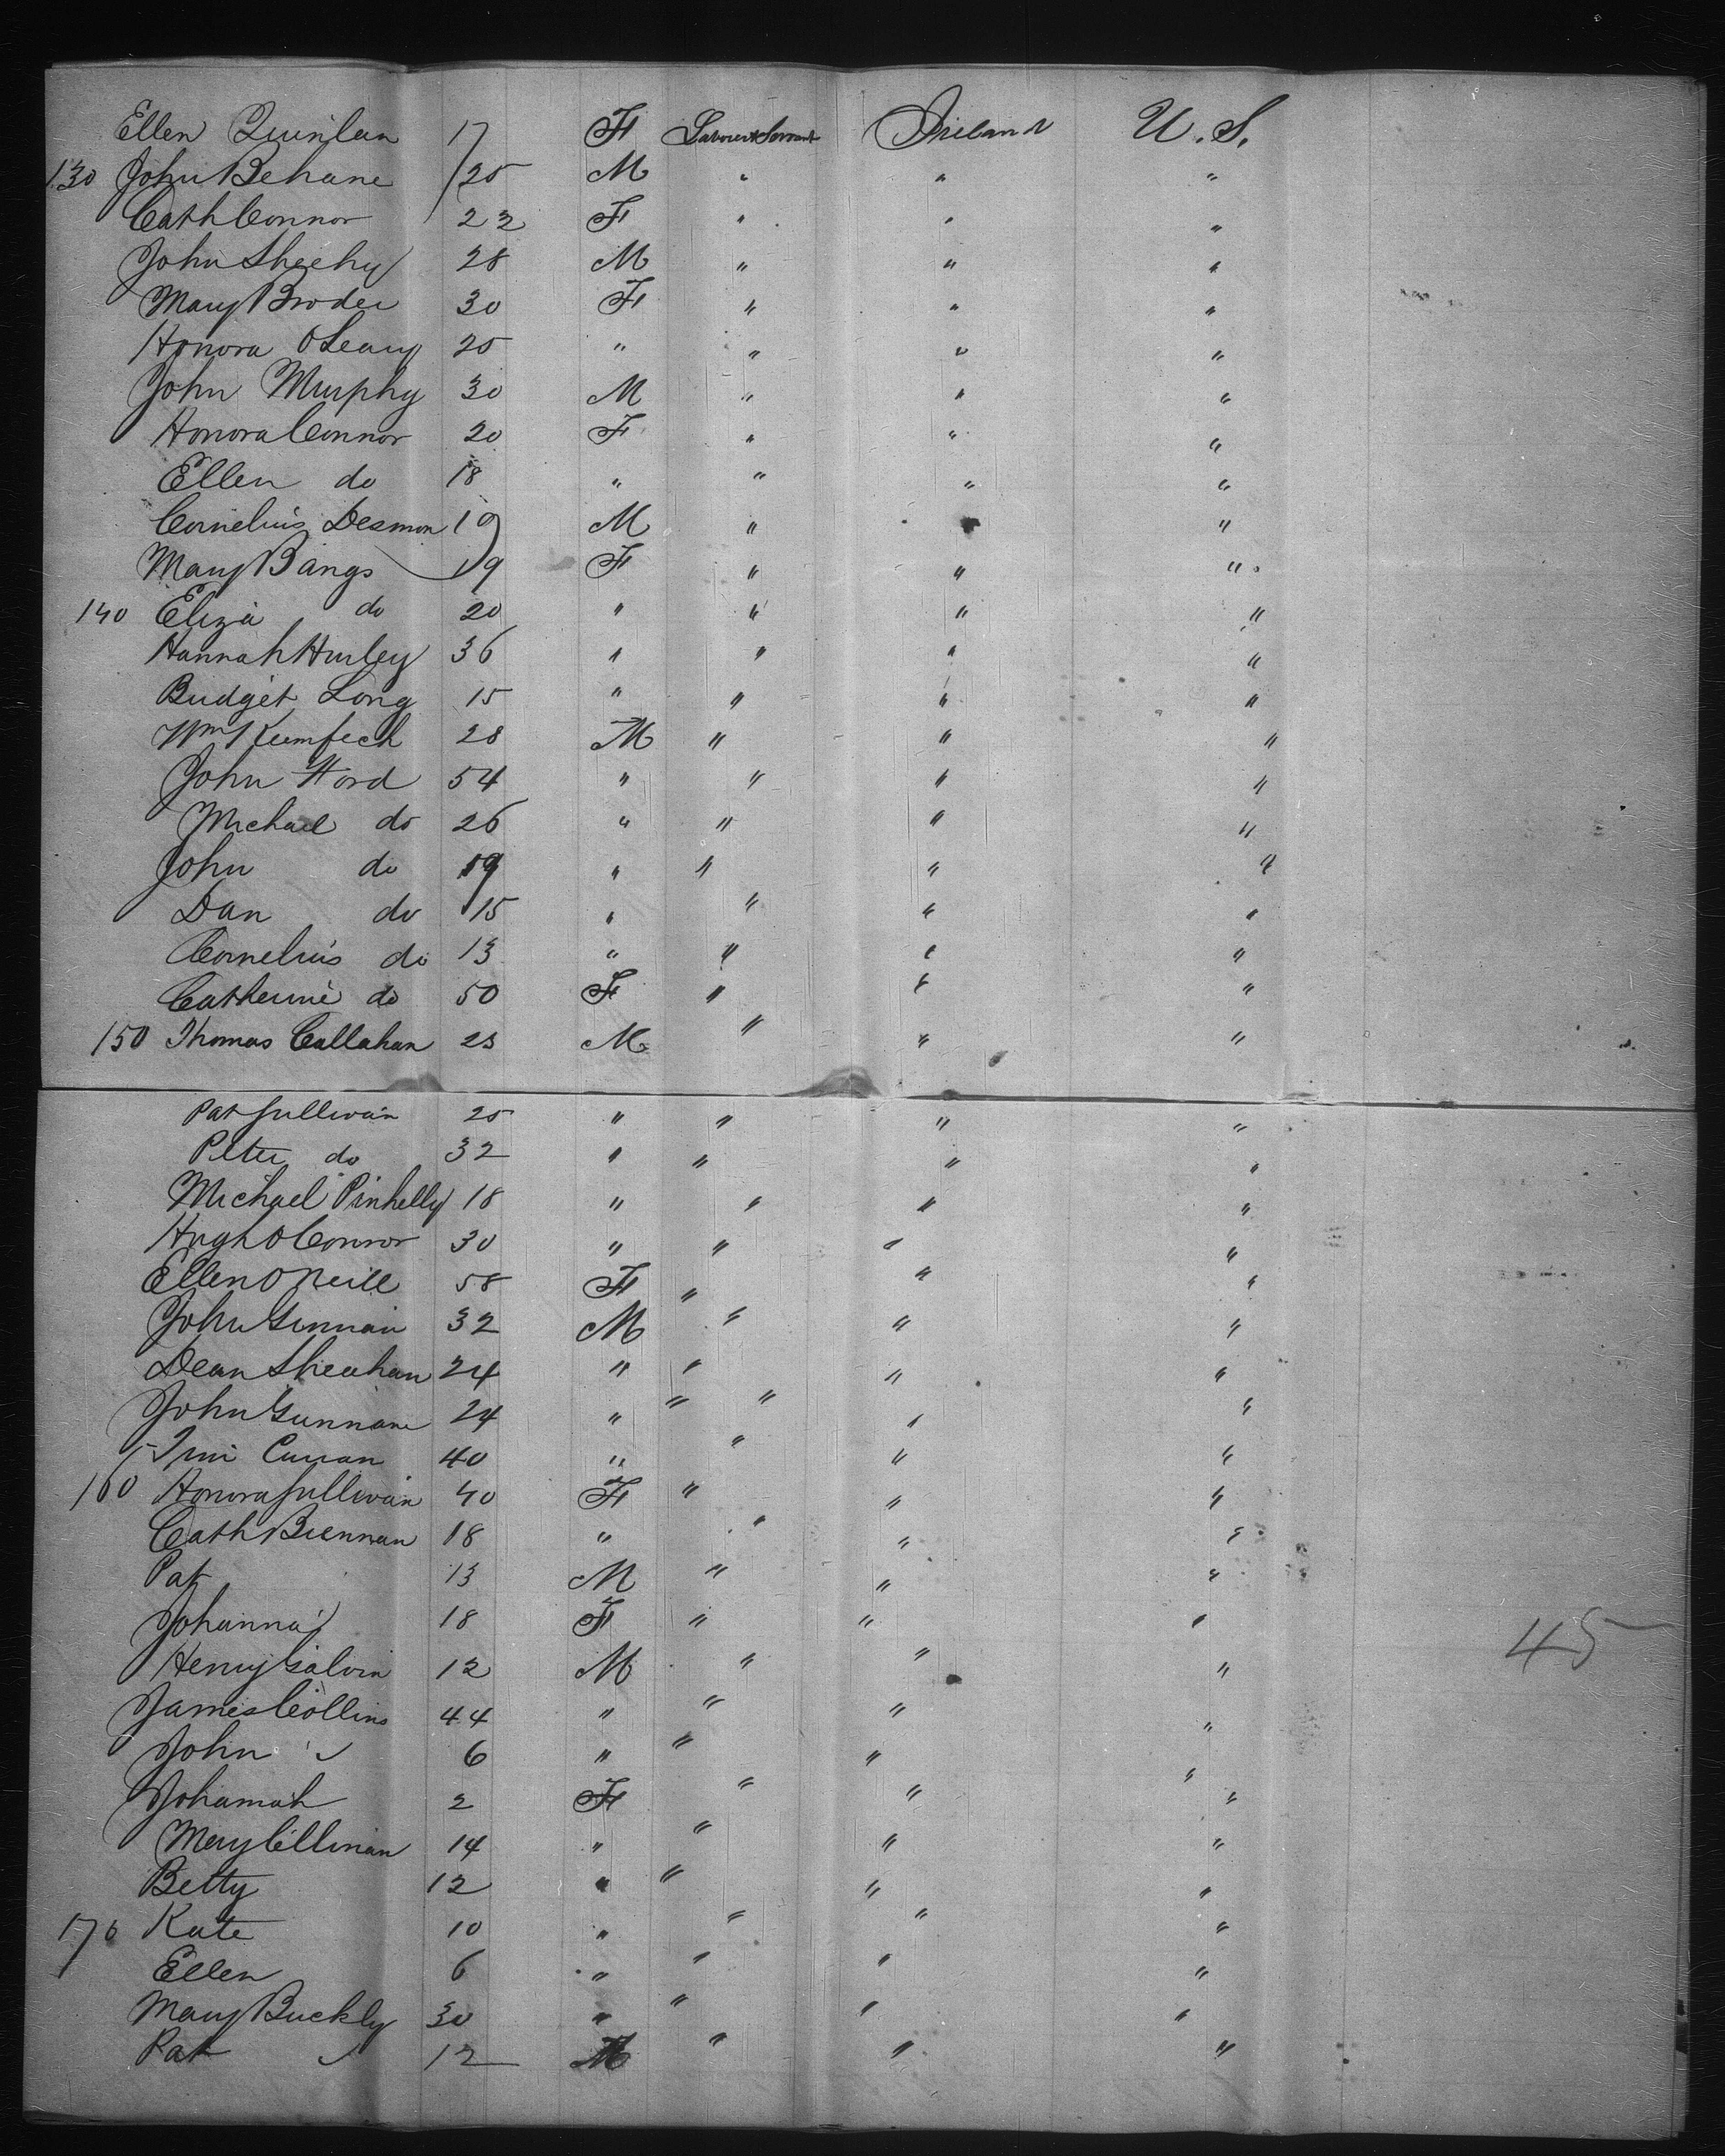 Ellen Quinlan 17 F Labourer & Servant Ireland U. S.
130 John Behane 25 M " " "
Cath Connor 22 F " " "
John Sheehy 28 M " " "
Mary Broder 30 F " " "
Honora OLeary 25 " " " "
John Murphy 30 M " " "
Honora Connor 20 F " " "
Ellen do 18 " " " "
Cornelius Desmon 19 M " " "
Mary Bangs 19 F " " "
140 Eliza do 20 " " " "
Hannah Hurley 36 " " " "
Bridget Long 15 " " " "
Wm 28 M " " "
John Ford 54 " " " "
Michael do 26 " " " "
John do 19 " " " "
Dan do 15 " " " "
Cornelius do 13 " " " "
Catherine do 50 F " " "
150 Thomas Callahan 23 M " " "
Pat Sullivan 25 " " " "
Peter do 32 " " " "
Michael Pinhelly 18 " " " "
Hugh OConnor 30 " " " "
Ellen ONeill 58 F " " "
John 32 M " " "
Dean Sheahan 24 " " " "
John Gunnane 24 " " " " "
Tim Curran 40 " " " "
160 Honora Sullivan 40 F " " "
Cath Brennan 18 " " " "
Pat 13 M " " "
Johanna 18 F " " "
Henry Galvin 12 M " " "
James Collins 44 " " " "
John " 6 " " " "
Johannah 2 F " " "
Mary Cillinan 14 " " " "
Betty 12 " " " "
170 Kate 10 " " " "
Ellen 6 " " " "
Mary Buckly 30 " " " "
Pat " 12 M " " "
45